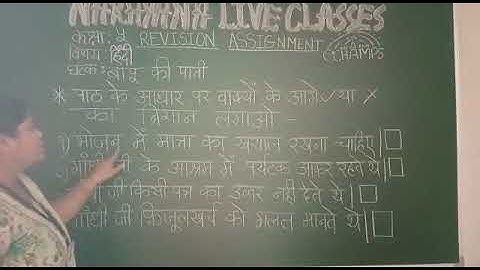 NARAYANA LIVE CLASSES
कक्षा: 5 REVISION ASSIGNMENT
विषय: हिंदी CHAMPS
की पाती
* पाठ के आधार पर वाक्यों के आगे ✓ या ✗
का निशान लगाओ -
१) भोजन में मात्रा का खयाल रखना चाहिए
जी के आश्रम में पर्यटक आकर रहते थे
जी किसी पत्र का उत्तर नहीं देते थे
गाँधी जी फ़िज़ूलखर्च को गलत मानते थे